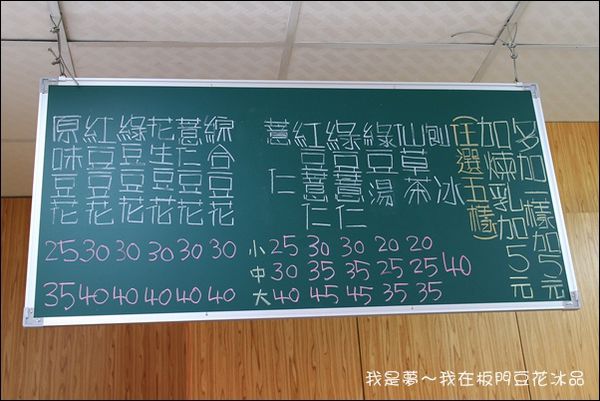 原味豆花
紅豆豆花
綠豆豆花
花生豆花
薏仁豆花
綜合豆花
25 30 30 30 30 30
35 40 40 40 40 40
薏仁
紅豆薏仁
綠豆薏仁
綠豆湯
仙草茶
刨冰
(任選五樣)
加煉乳加5元
多加一樣加5元
小 25 30 30 20 20
中 30 35 35 25 25 40
大 40 45 45 35 35
我是夢～我在板門豆花冰品